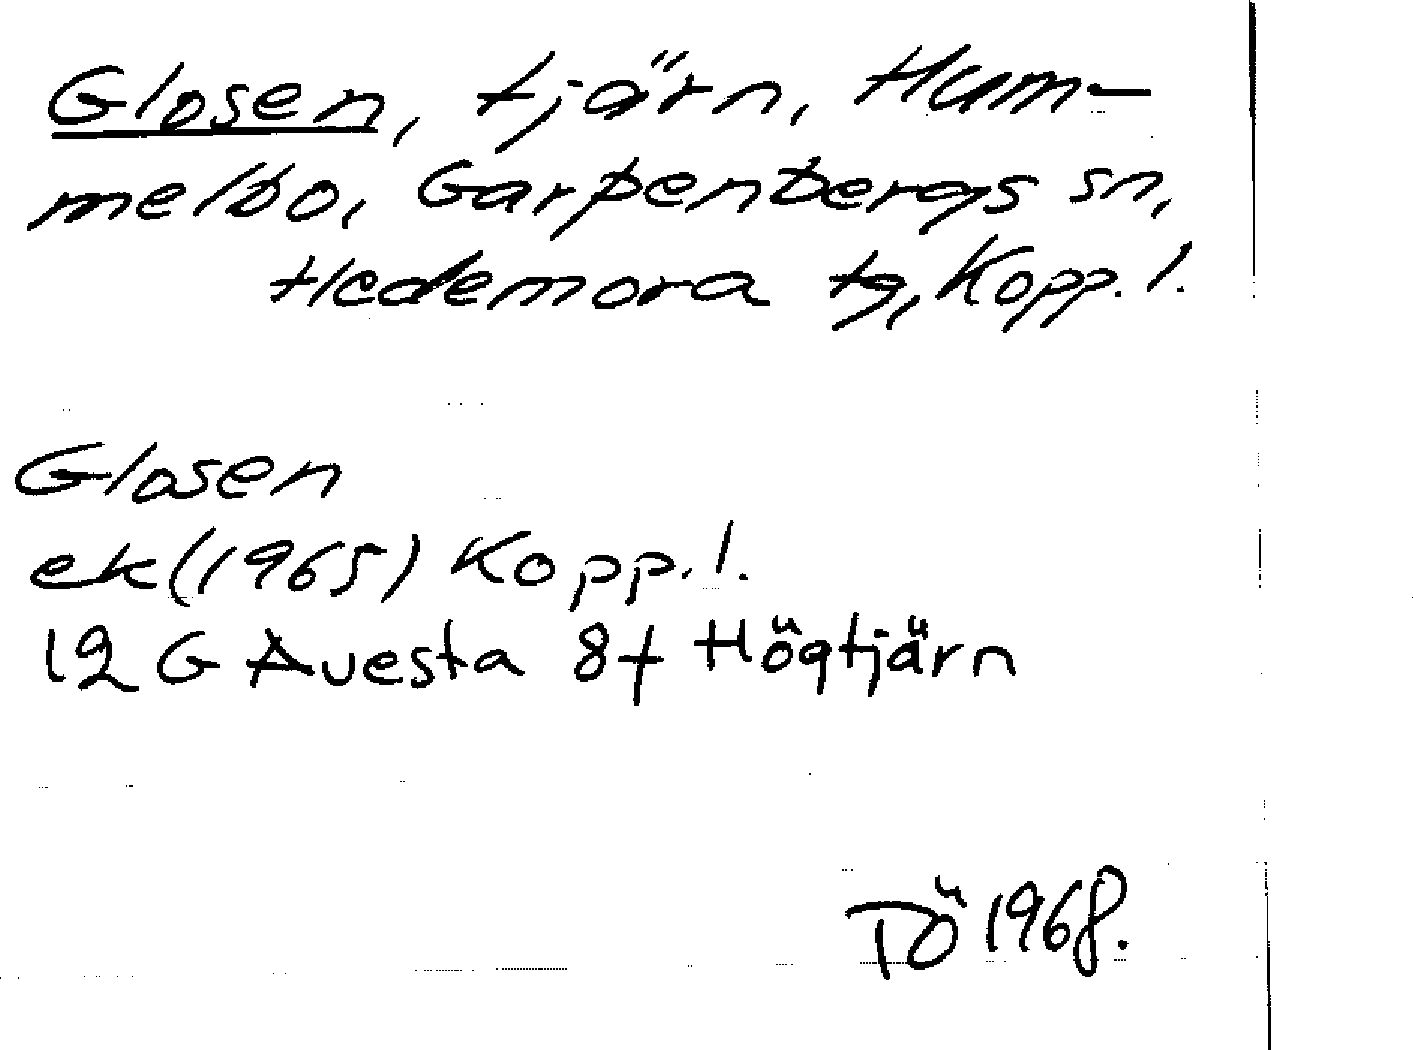 Glosen, tjärn, Hum-
melbo, Garpenbergs sn,
Hedemora tg, Kopp. l.
Glosen
ek (1965) Kopp. l.
12 G Avesta 8f Högtjärn
TÖ 1968.